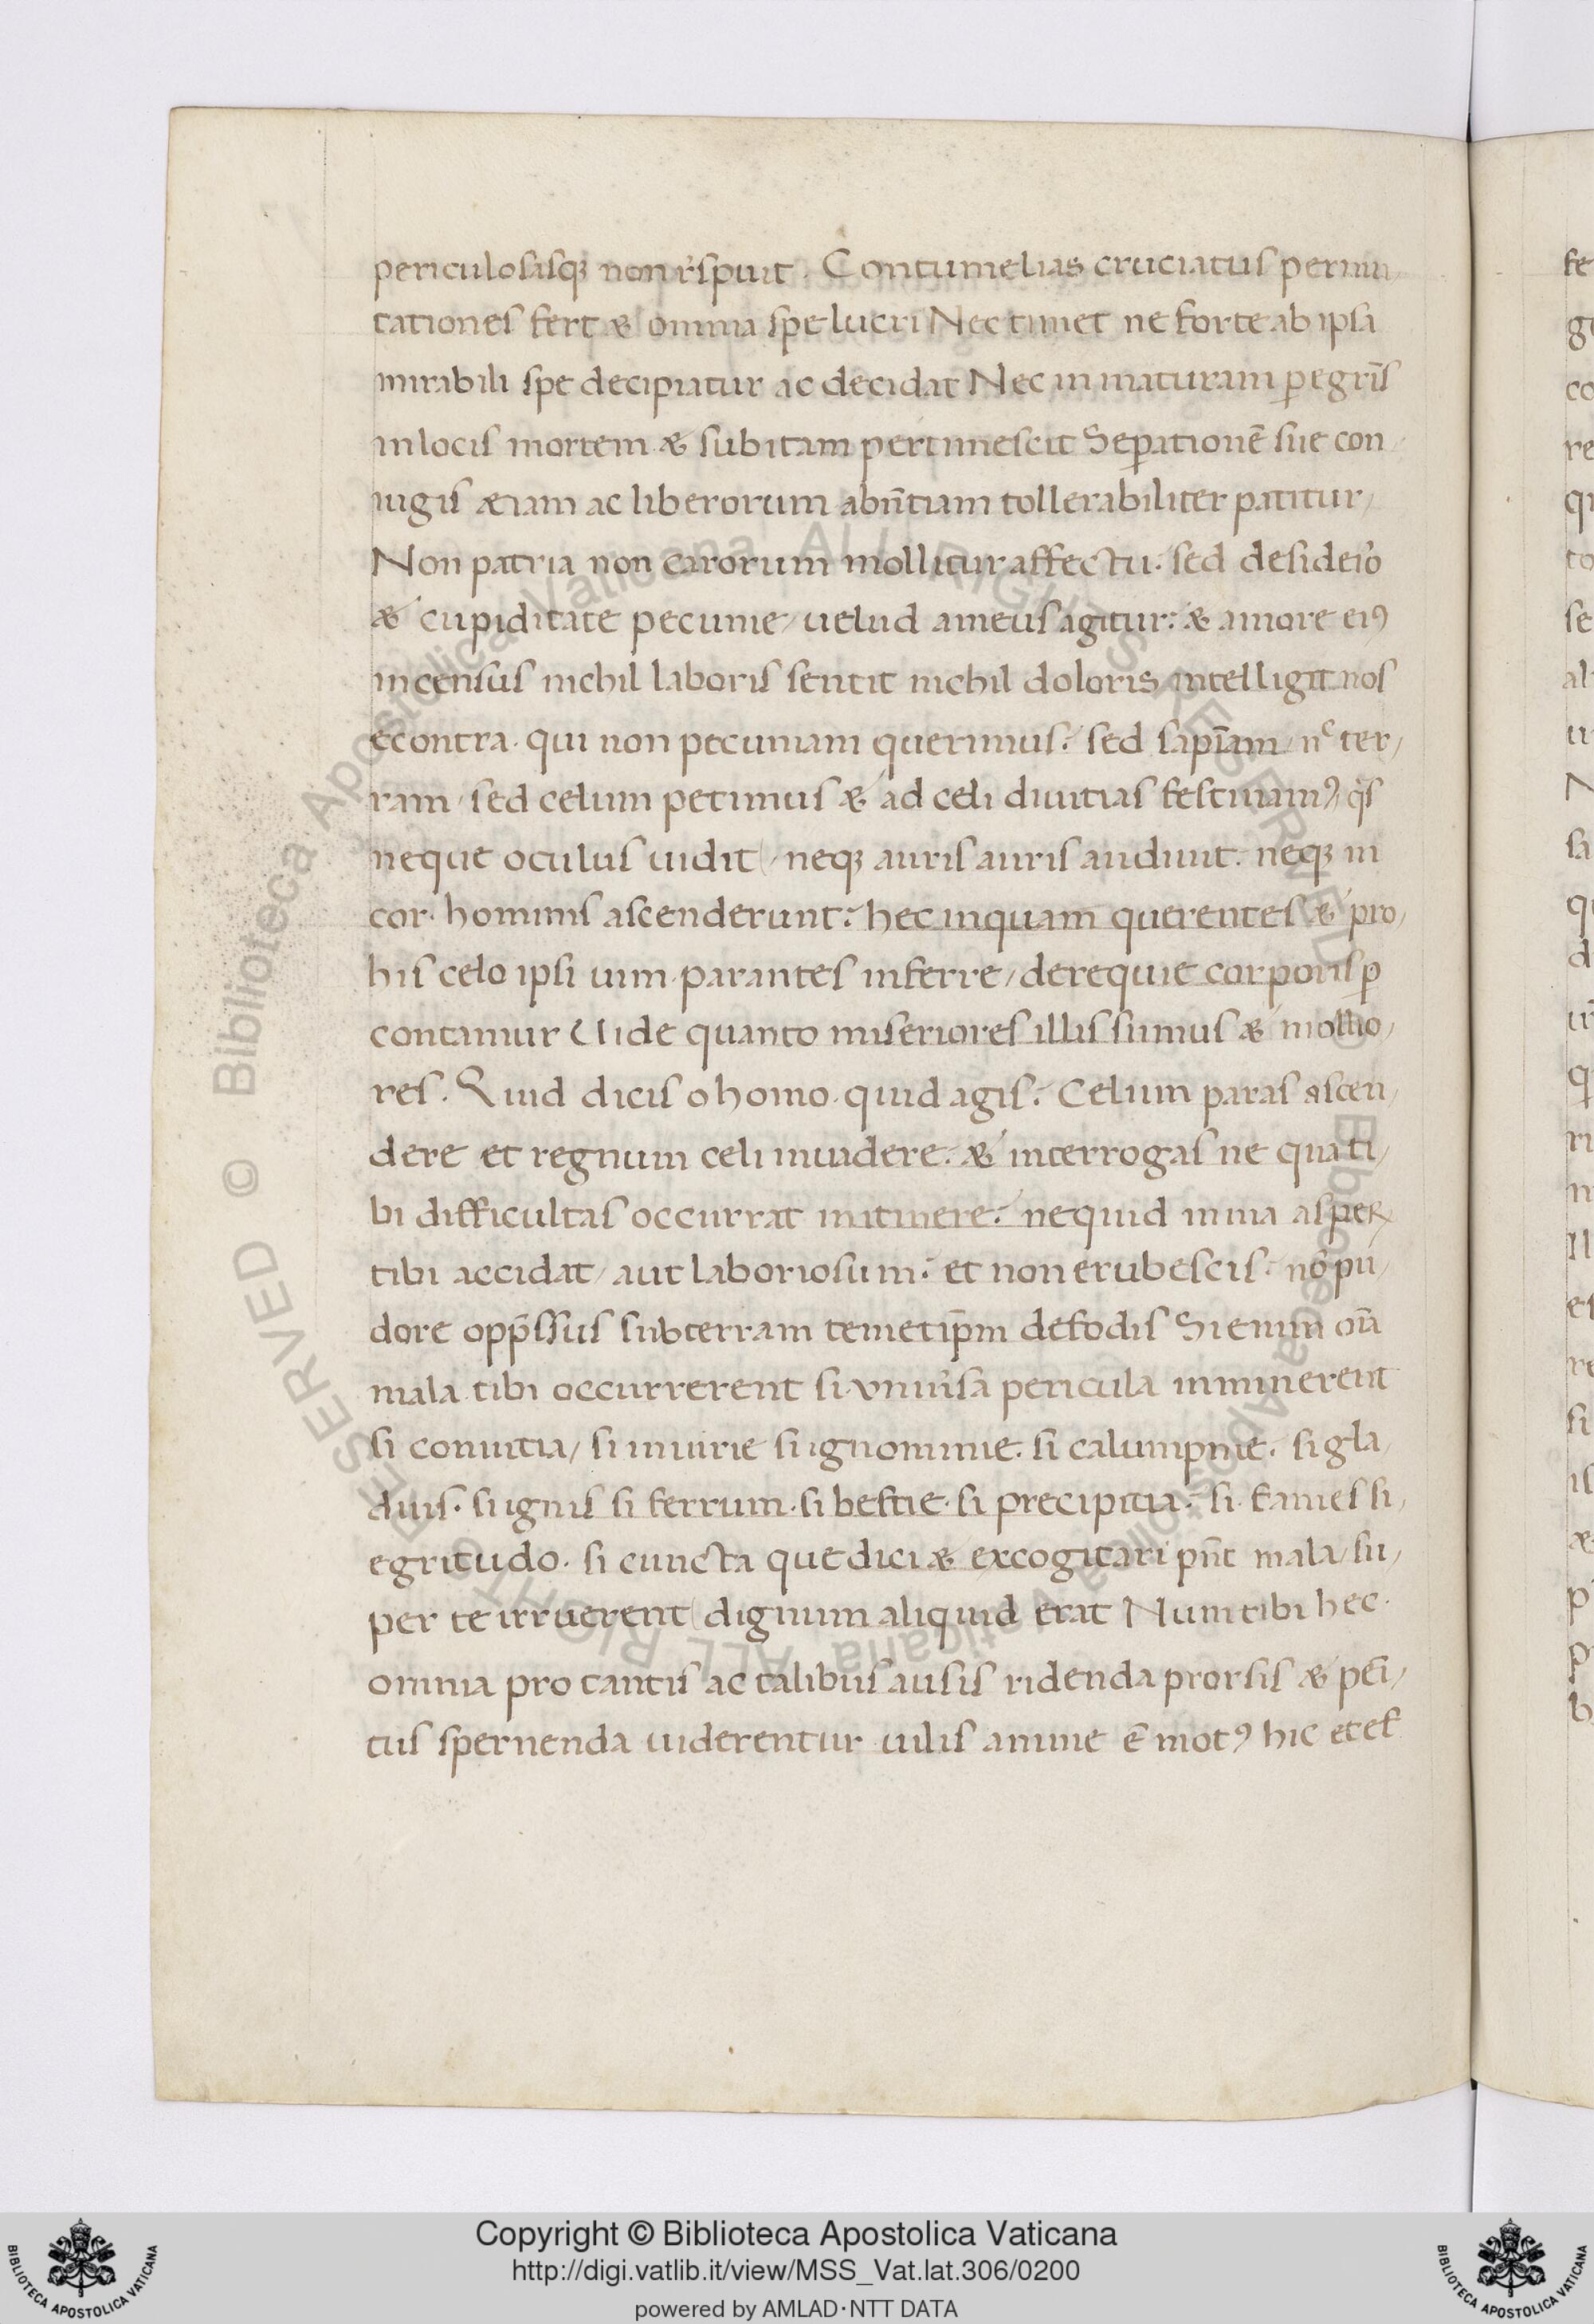 periculosisq; non r̾spuit. Contumelias cruciatus permu/
tationes fert & omnia spe lucri Nec timet ne forte ab ipsa
mirabili spe decipiatur ac decidat Nec inmaturam pegrīs
inlocis mortem & subitam pertimescit Sepationē sue con/
iugis &iam ac liberorum abn̄tiam tollerabiliter patitur/
Non patria non carorum mollitur affectu. sed desideio
& cupiditate pecunie/ uelud ameus agitur: & amore eiꝰ
incensus nichil laboris sentit nichil doloris intelligit nos
econtra. qui non pecuniam querimus: sed sapīam/ nc ter/
ram/ sed celum petimus & ad celi diuitias festinamꝰ/ qs
neque oculus uidit/ neq; auris auris audiuit. neq; in
cor. hominis ascenderunt: hec inquam querentes & pro/
his celo ipsi uim parantes inferre/ derequie corporis ꝑ
contamur Uide quanto miseriores illis sumus & mollio/
res. Quid dicis o homo. quid agis: Celum paras ascen/
dere et regnum celi inuadere: & interrogas ne qua ti/
bi difficultas occurrat initinere: nequid inuia asperꝝ
tibi accidat/ aut laboriosum: et non erubescis: nō pu/
dore opp̄ssus subterram temetip̄m defodis Si enim oīa
mala tibi occurrerent si. vniu̾sa pericula imminerent
si conuitia/ si iniurie si ignominie. si calumpnie. si gla/
dius. si ignis si ferrum. si bestie. si precipitia: si. fames si/
egritudo. si cuncta que dici & excogitari pn̄t mala/ su/
per te irruerent dignum aliquid erat Num tibi hec.
omnia pro tantis ac talibus ausis ridenda prorsis & pēi/
tus spernenda uiderentur uilis anime ē motꝰ hic et ef
Copyright © Biblioteca Apostolica Vaticana
http://digi.vatlib.it/view/MSS_Vat.lat.306/0200
powered by AMLAD·NTT DATA